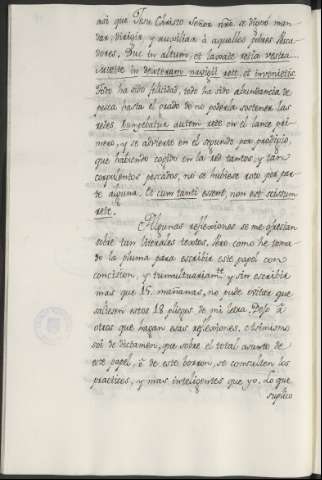 asi que Jesu Christo Señor nrõ. se dignó man-
dar, dirigir, y auxiliar à aquellos pobres Pesca-
dores. Duc in altum, et laxate retia vestra.
Mittite in dexteram navigii rete, et invenietis.
Todo ha sido felicidad, todo ha sido abundancia de
pesca hasta el grado de no poderla sostener las
redes. Rumpebatur autem rete en el lance pri-
mero, y se advierte en el segundo por prodigio,
que habiendo cogido en la red tantos, y tan
corpulentos pescados, no se hubiese roto por par-
te alguna. Et cum tanti essent, non est scissum
rete.
Algunas reflexiones se me ofrecian
sobre tan literales textos. Pero como he toma-
do la pluma para escribir este papel con
concision, y tumultuariamte. y sin escribir
mas que 15. mañanas, no pude evitar que
saliesen estos 18. pliegos de mi letra. Dejo à
otros que hagan esas reflexiones, é asimismo
soi de dictamen, que sobre el total asunto de
este papel, ò de este borron, se consulten los
practicos, y mas inteligentes que yo. Lo que
suplico